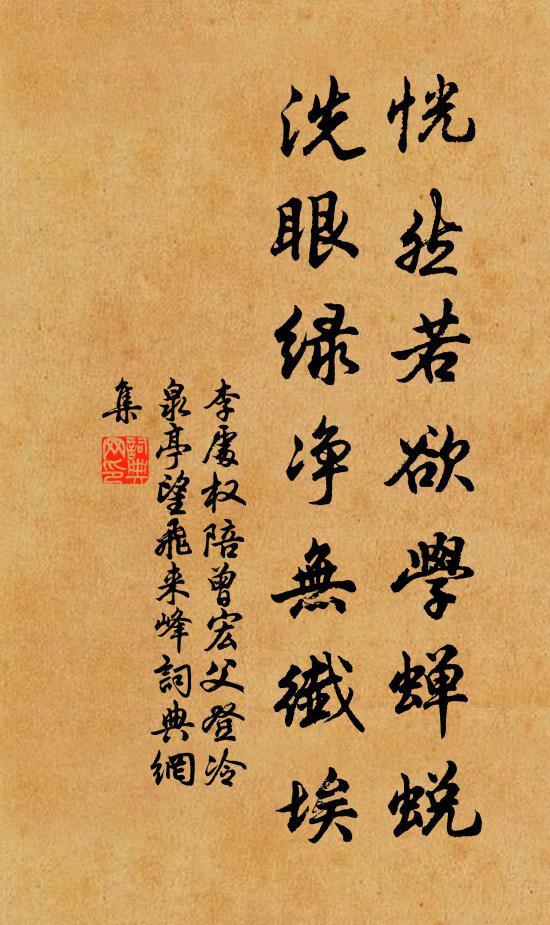 恍然若欲學蟬蜕
洗眼緑净無纖埃
李處权陪曾宏父登冷
泉亭望飛来峰詞典網
集
詞典網印